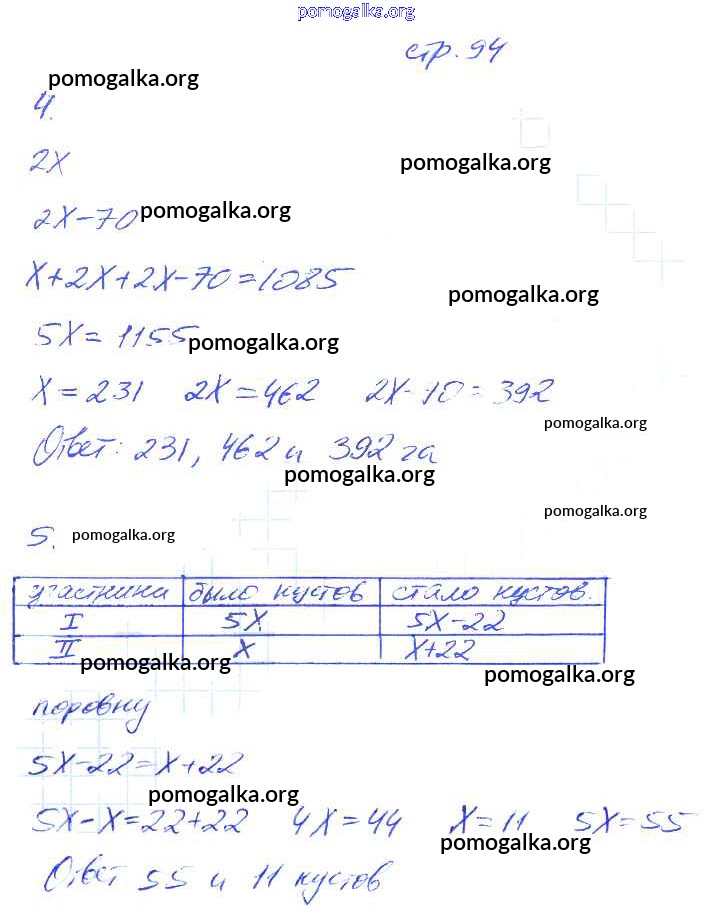 pomogalka.org
стр. 94
pomogalka.org
4.
2x
pomogalka.org
2x-70 pomogalka.org
x+2x+2x-70=1085
pomogalka.org
5x=1155 pomogalka.org
x=231 2x=462 2x-10=392
pomogalka.org
Ответ: 231, 462 и 392 га
pomogalka.org
pomogalka.org
5. pomogalka.org
участники было кустов стало кустов.
I 5x 5x-22
II x x+22
pomogalka.org
pomogalka.org
поровну
5x-22=x+22
pomogalka.org
5x-x=22+22 4x=44 x=11 5x=55
pomogalka.org
Ответ 55 и 11 кустов